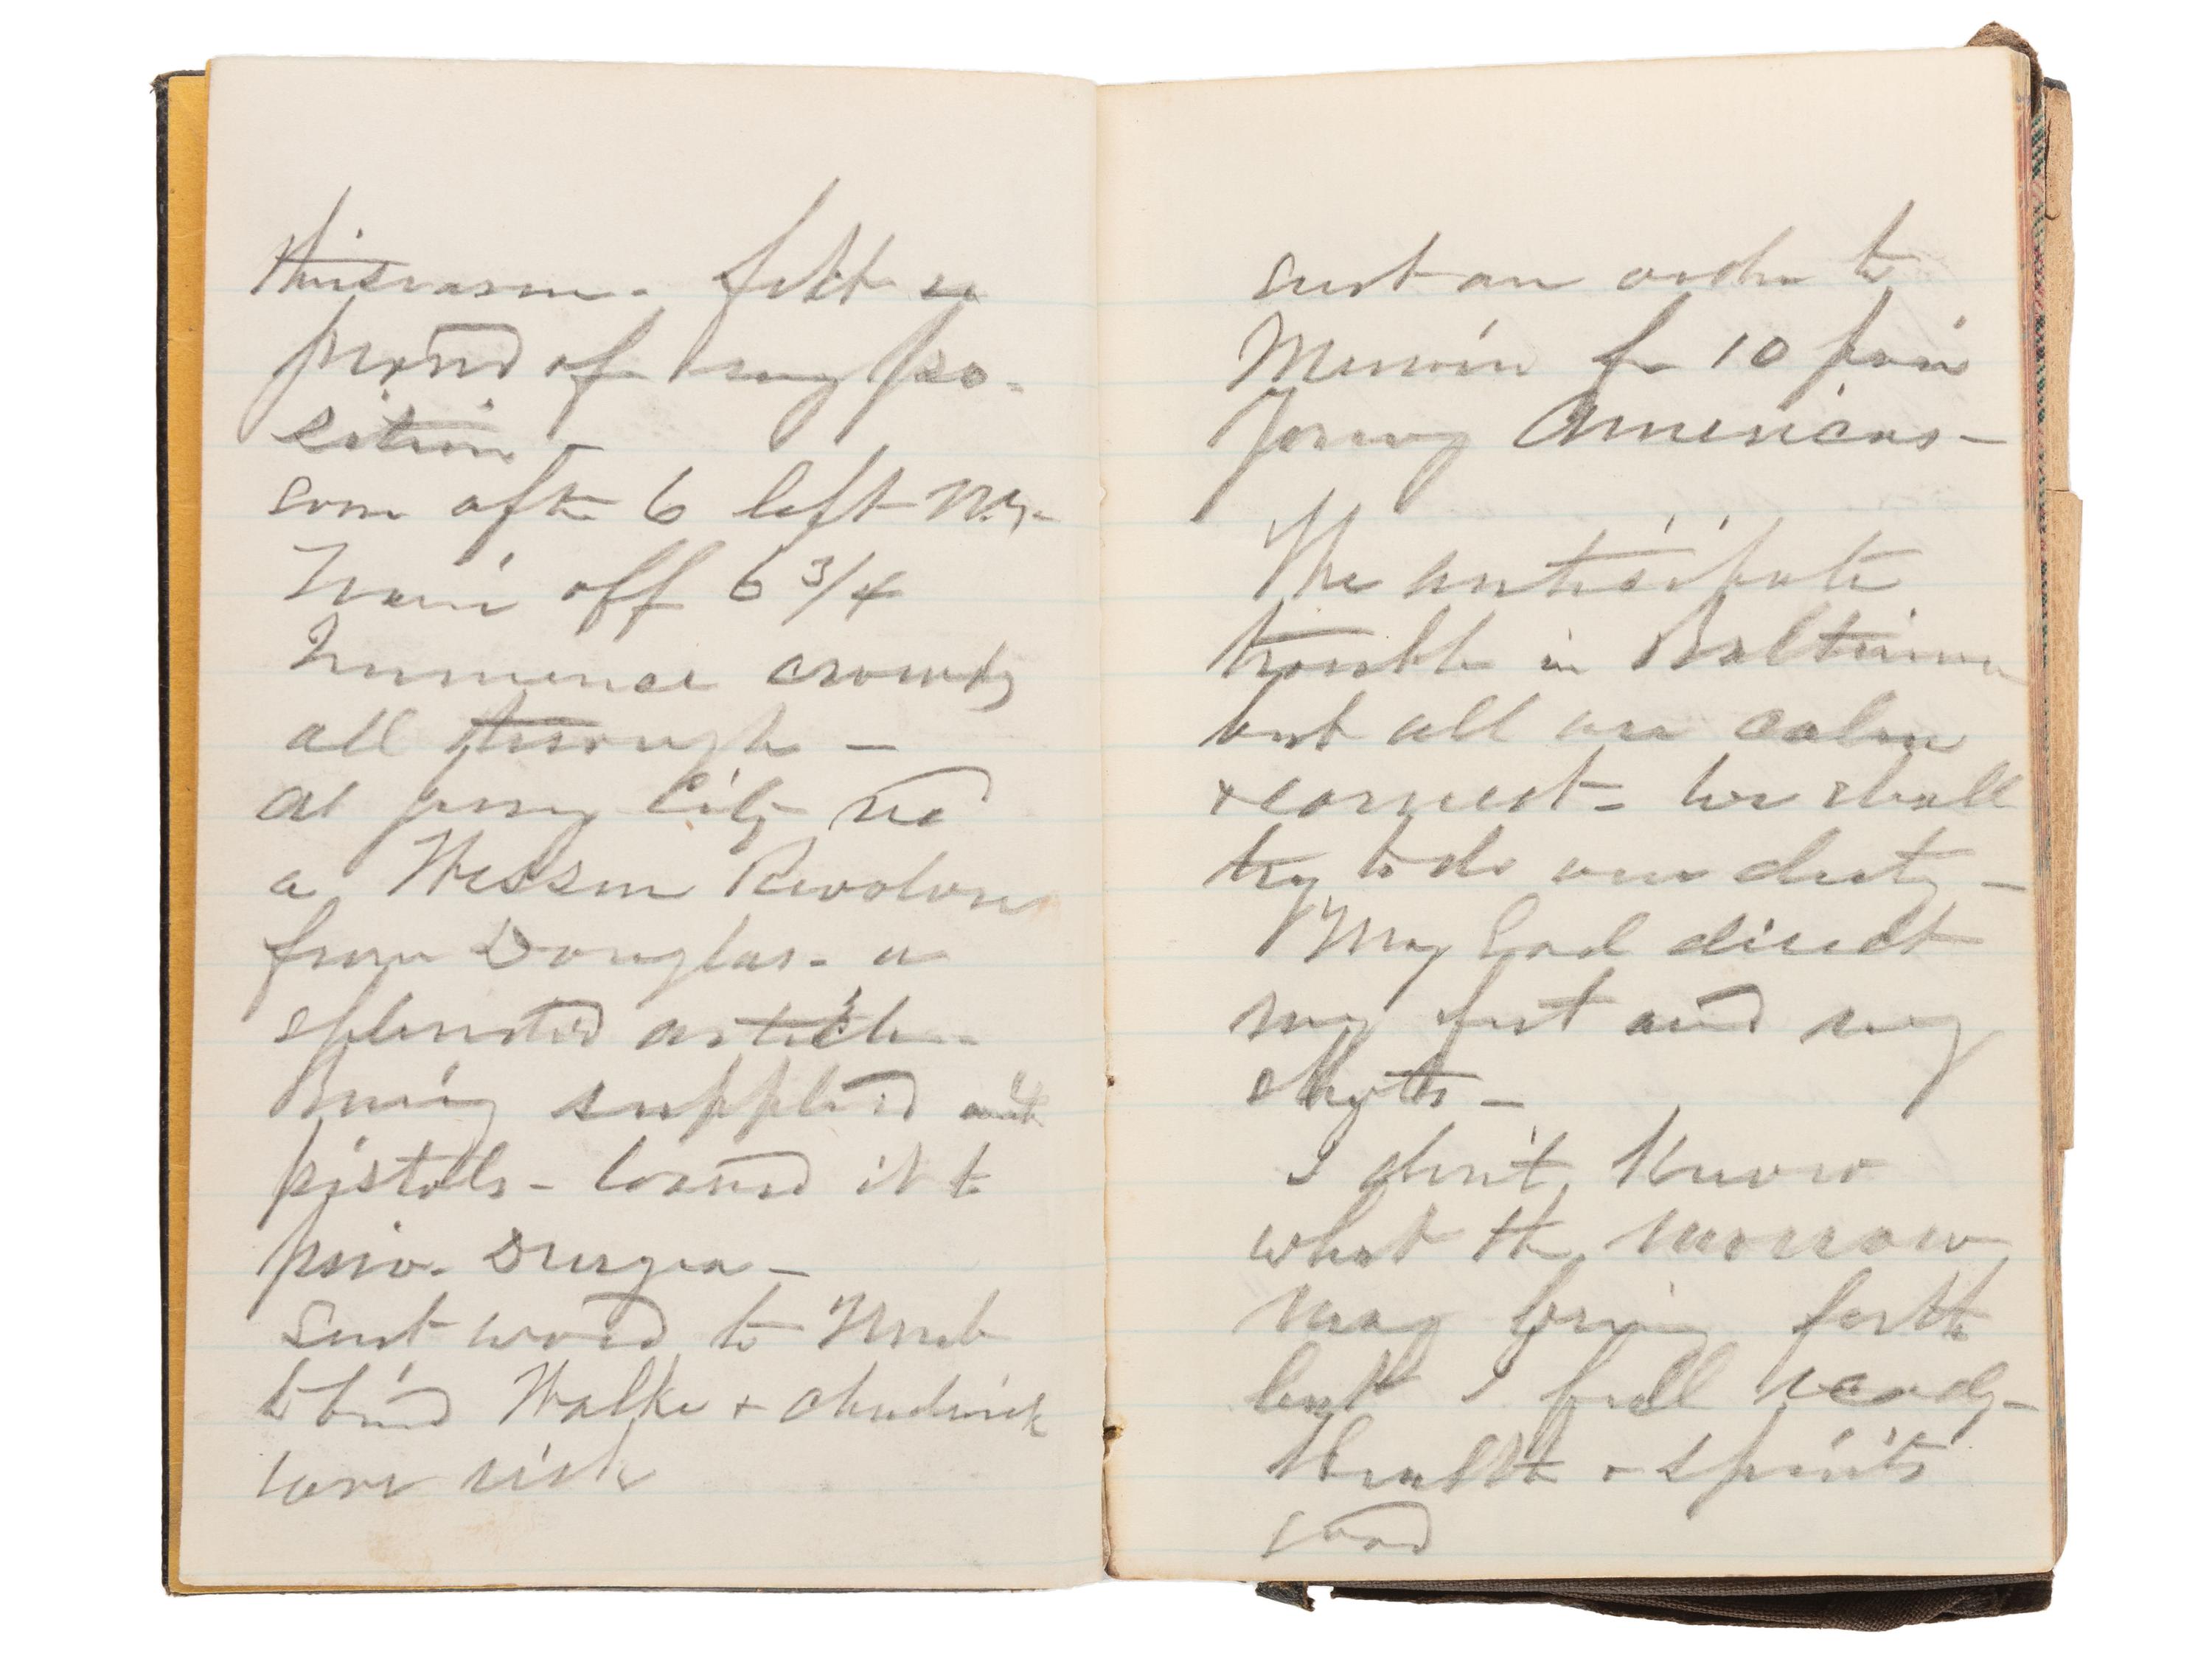 thusiasm - felt so
proud of my po-
sition -
soon after 6 left N.Y.
Train off 6 3/4
Immense crowds
all through -
At Jersey City rec
a Wesson Revolver
from Douglas - a
splendid article -
Being supplied with
pistols - loaned it to
priv. Burgess -
Sent word to
to find Walker + Chadwick
were sick
sent an order to
Merwin for 10 pair
Young Americas -
The anticipate
trouble in Baltimore
but all are calm
+ earnest - We shall
try to do our duty -
May God direct
my feet and my
shots -
I don't know
what the morrow
may bring forth
but I feel ready -
Health + spirits
good